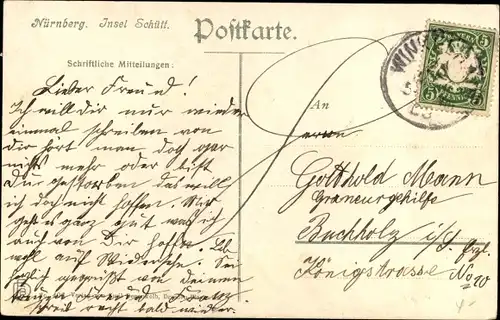 Nürnberg. Insel Schütt.
Postkarte.
Schriftliche Mitteilungen:
Lieber Freund!
Ich will Dir nur wieder
einmal schreiben von
Dir hört man doch gar
nichts mehr oder bist
Du gestorben das will
ich doch nicht hoffen. Mir
geht es ganz gut was ich
auch von Dir hoffe. Leb
wohl auf Wiedersehn. Sei
herzlich gegrüßt von deinem
Freund
schreib recht bald wieder.
An
Herrn
Gotthold Mann
Graveurgehilfe
Buchholz i/S. Erzg.
Königstrasse No 10
WIN
5
BAYERN
5
5
PFENNIG